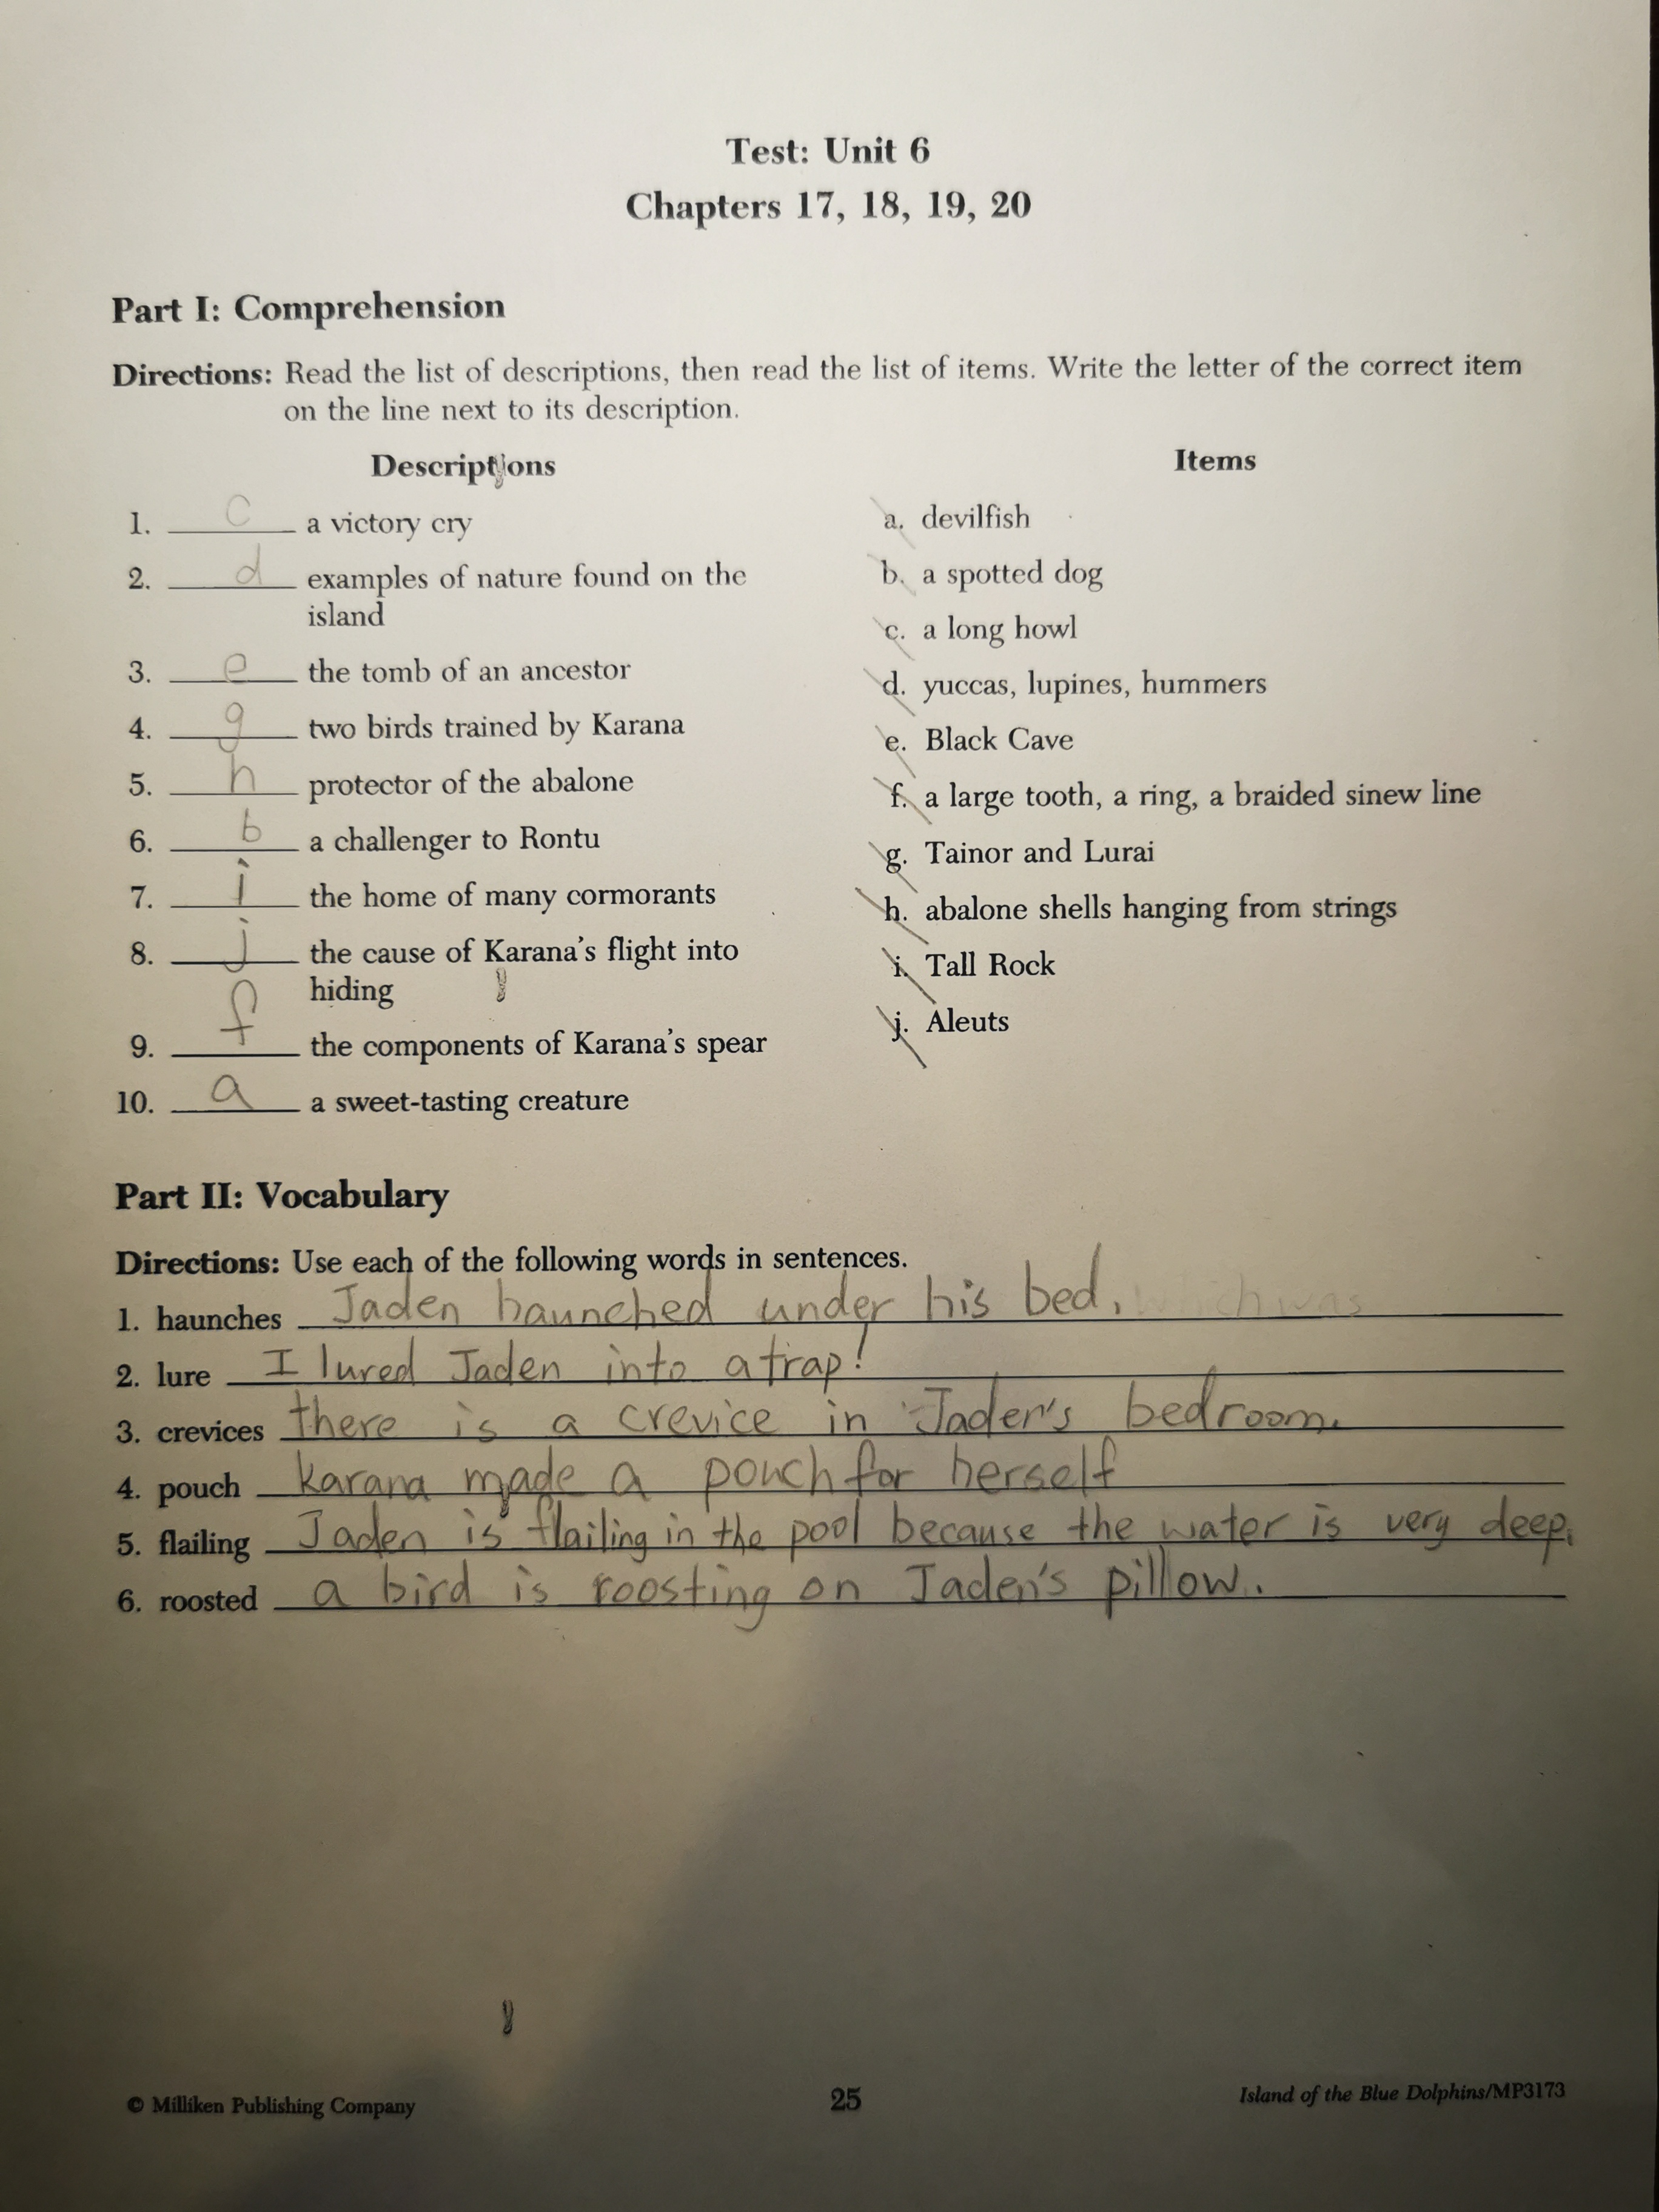 Test: Unit 6
Chapters 17, 18, 19, 20
Part I: Comprehension
Directions: Read the list of descriptions, then read the list of items. Write the letter of the correct item
on the line next to its description.
Descriptions
1. c a victory cry
2. d examples of nature found on the
island
3. e the tomb of an ancestor
4. g two birds trained by Karana
5. h protector of the abalone
6. b a challenger to Rontu
7. i the home of many cormorants
8. j the cause of Karana's flight into
hiding
9. f the components of Karana's spear
10. a a sweet-tasting creature
Items
a. devilfish
b. a spotted dog
c. a long howl
d. yuccas, lupines, hummers
e. Black Cave
f. a large tooth, a ring, a braided sinew line
g. Tainor and Lurai
h. abalone shells hanging from strings
i. Tall Rock
j. Aleuts
Part II: Vocabulary
Directions: Use each of the following words in sentences.
1. haunches Jaden haunched under his bed. which was
2. lure I lured Jaden into a trap!
3. crevices there is a crevice in Jaden's bedroom.
4. pouch karana made a pouch for herself
5. flailing Jaden is flailing in the pool because the water is very deep.
6. roosted a bird is roosting on Jaden's pillow.
© Milliken Publishing Company
25
Island of the Blue Dolphins/MP3173